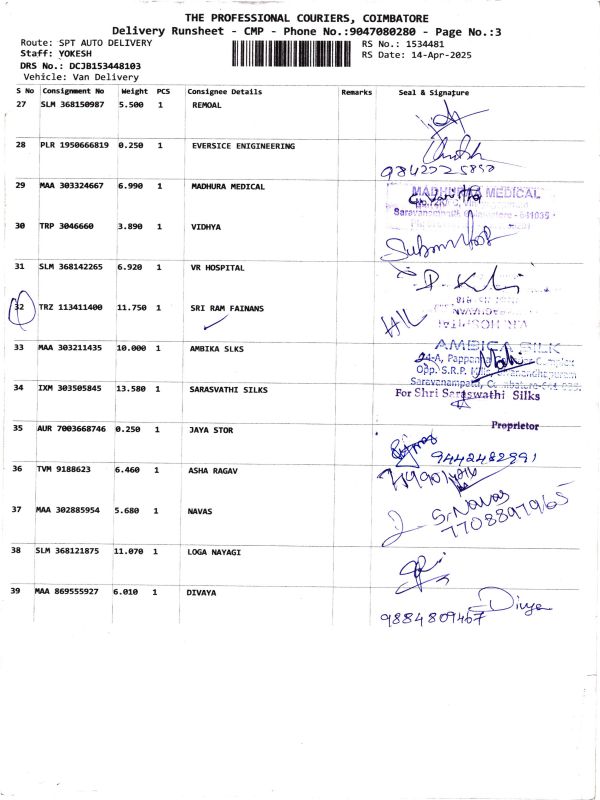 THE PROFESSIONAL COURIERS, COIMBATORE
Delivery Runsheet - CMP - Phone No.:9047080280 - Page No.:3
Route: SPT AUTO DELIVERY
RS No.: 1534481
Staff: YOKESH
RS Date: 14-Apr-2025
DRS No.: DCJB153448103
Vehicle: Van Delivery
S No Consignment No Weight PCS Consignee Details Remarks Seal & Signature
27 SLM 368150987 5.500 1 REMOAL
28 PLR 1950666819 0.250 1 EVERSICE ENIGINEERING
9842225890
29 MAA 303324667 6.990 1 MADHURA MEDICAL
MADHURA MEDICAL
30 TRP 3046660 3.890 1 VIDHYA
31 SLM 368142265 6.920 1 VR HOSPITAL
32 TRZ 113411400 11.750 1 SRI RAM FAINANS
33 MAA 303211435 10.000 1 AMBIKA SLKS
AMBICA SILK
34 IXM 303505845 13.580 1 SARASVATHI SILKS
For Shri Saraswathi Silks
Proprietor
35 AUR 7003668746 0.250 1 JAYA STOR
9442482991
36 TVM 9188623 6.460 1 ASHA RAGAV
37 MAA 302885954 5.680 1 NAVAS
S. Navas
7708897965
38 SLM 368121875 11.070 1 LOGA NAYAGI
39 MAA 869555927 6.010 1 DIVAYA
Divya
9884809467